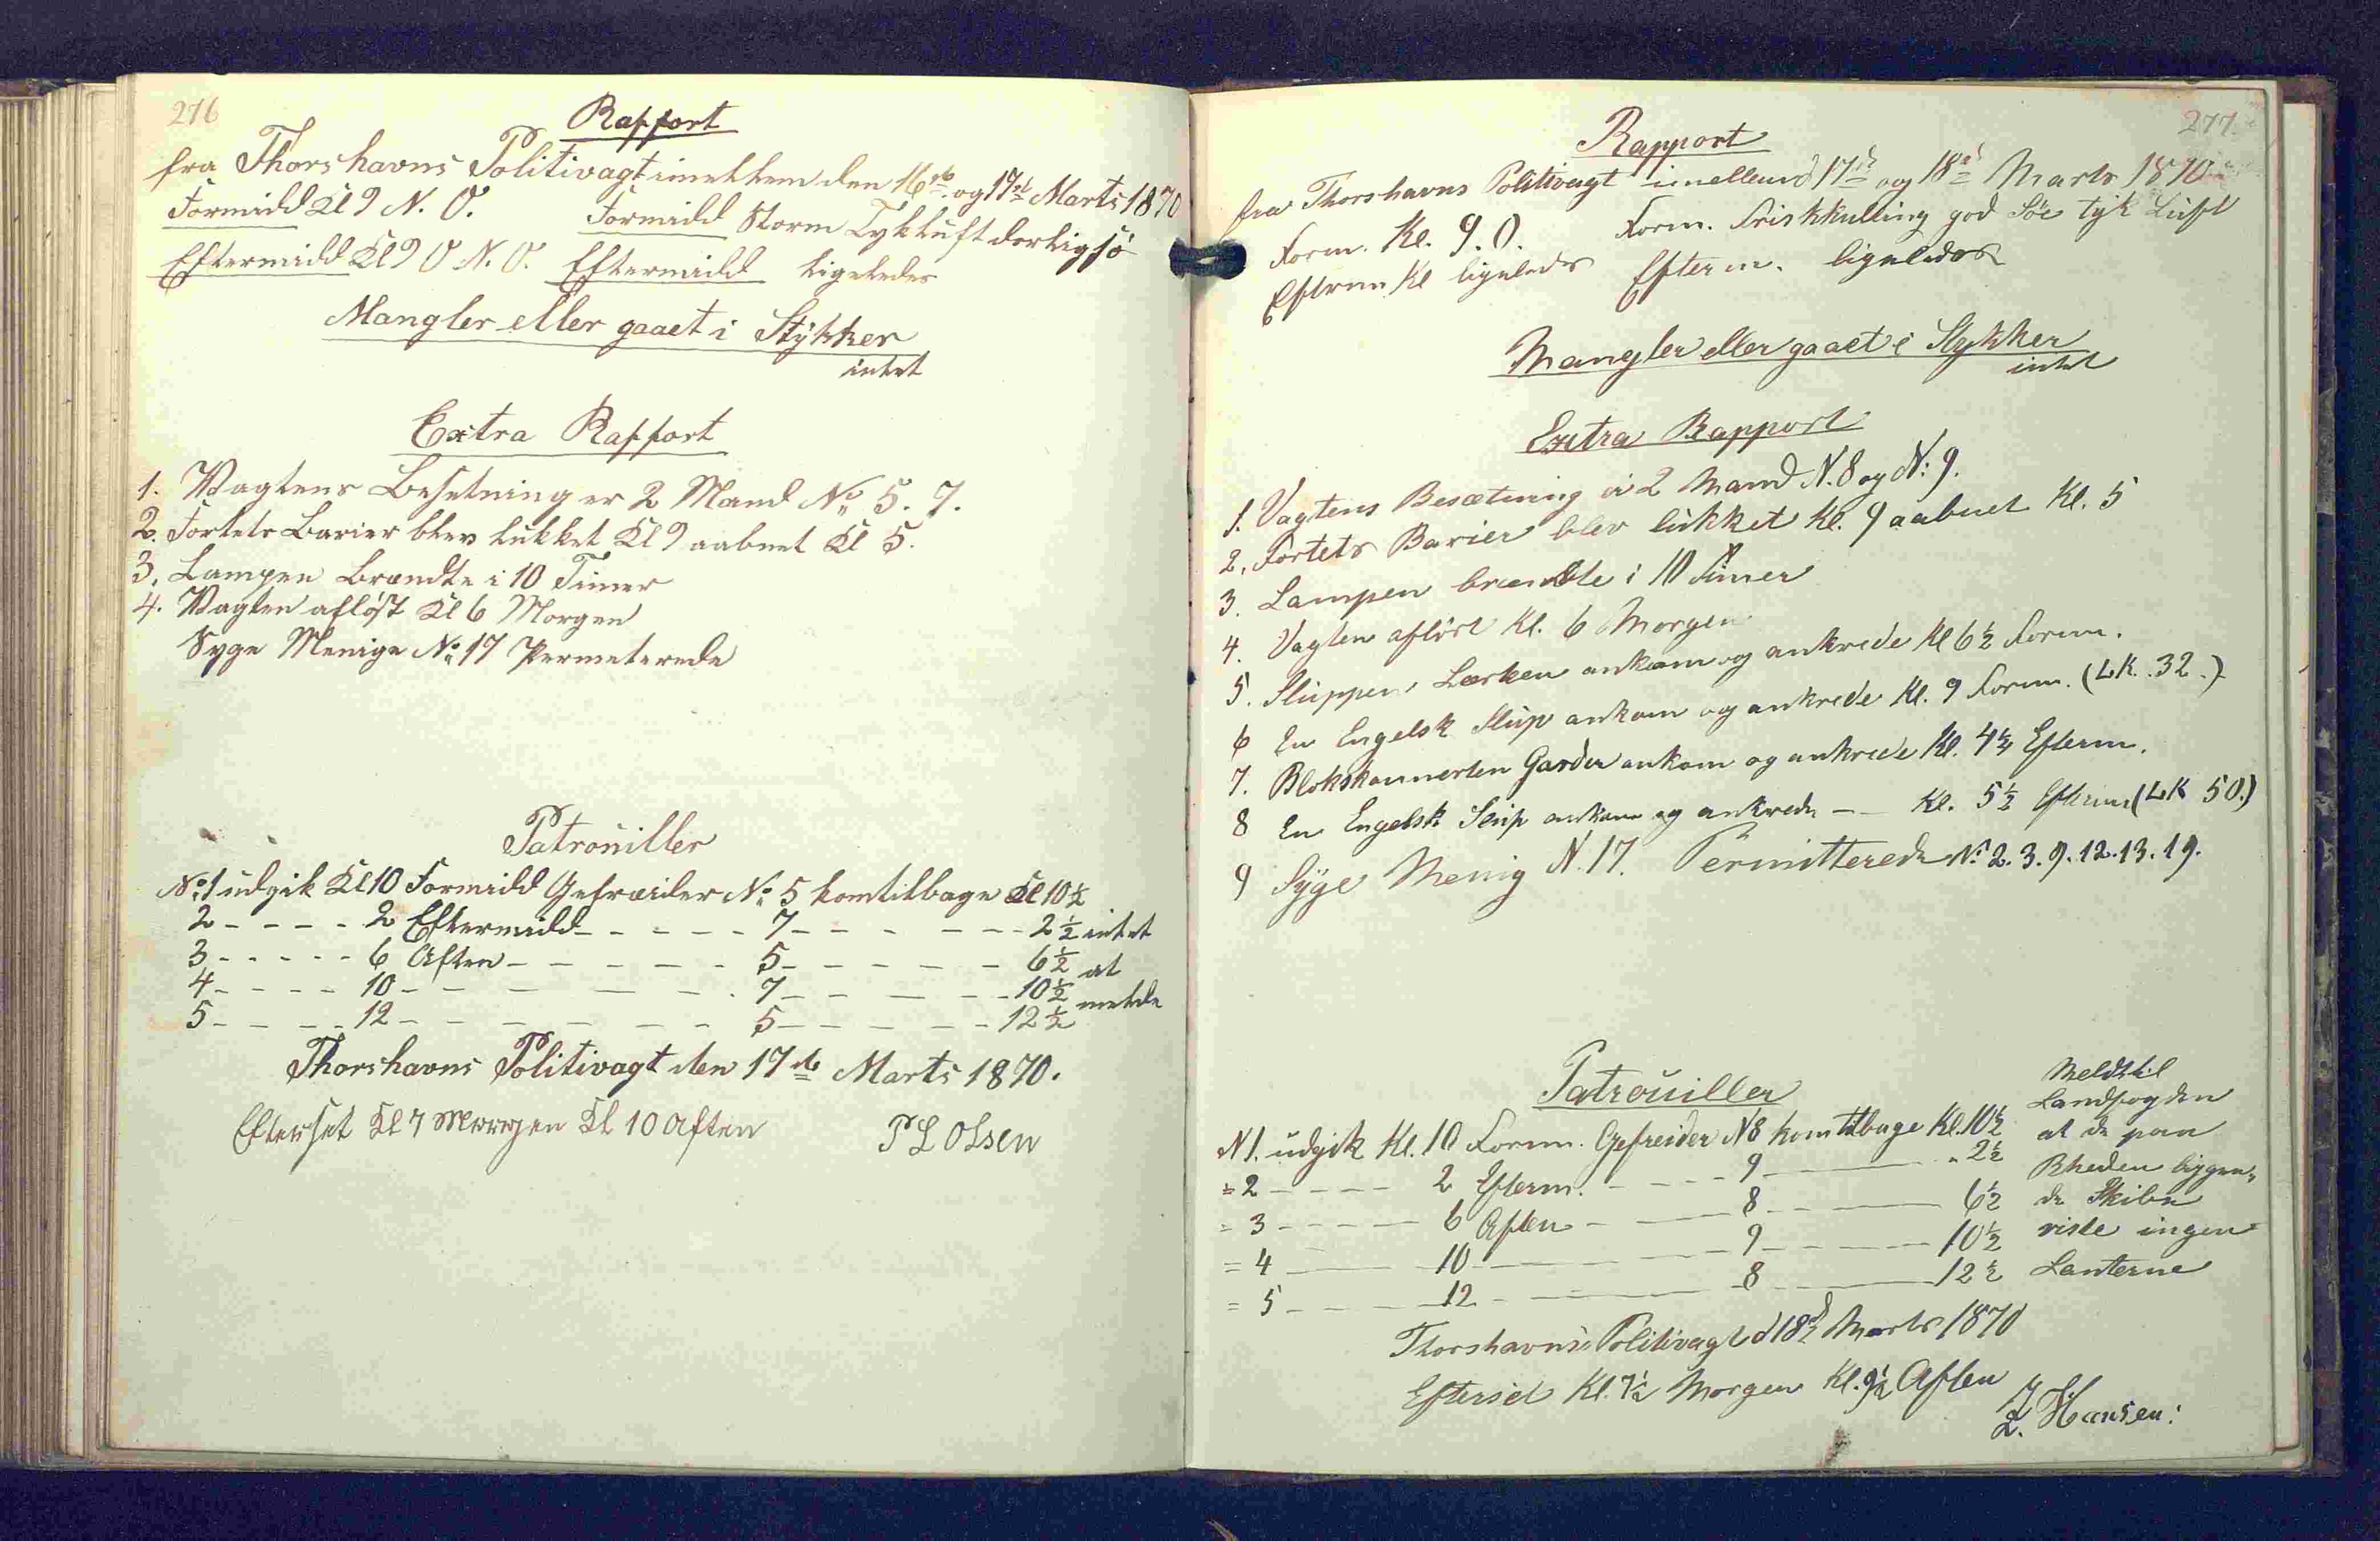 276
Rapport
fra Thorshavns Politivagt imellem den 16de og 17de Marts 1870
Formidd Kl 9 N. O. Formidd Storm Tykluft dorligsö
Eftermidd Kl 9 O N. O. Eftermidd ligeledes
Mangler eller gaaet i Stÿkker
intet
Extra Rapport
1. Vagtens Besetning er 2 Mand No 5. 7.
2. Fortets Barier blev lukket Kl 9 aabnet Kl 5.
3. Lampen Brændte i 10 Timer
4. Vagten aflöst Kl 6 Morgen
Syge Menige No 17 Permeterede
Patrouiller
No 1 udgik Kl 10 Formidd Gefreider No 5 komtilbage Kl 10½
2 - - - - 2 Eftermidd - - - - - 7 - - - - - - 2½ intet
3 - - - - - 6 Aften - - - - - - 5 - - - - - 6½ at
4 - - - - 10 - - - - - - - 7 - - - - - 10½ melde
5 - - - - 12 - - - - - - - 5 - - - - - 12½
Thorshavns Politivagt den 17de Marts 1870.
Efterset Kl 7 Morgen Kl 10 Aften P L Olsen
277.
Rapport
fra Thorshavns Politivagt imellem d 17de og 18de Marts 1870
Form. Kl. 9. O. Form. Friskkulling god Söe tyk Luft
Efterm Kl ligeledes Efterm. ligeledes
Mangler eller gaaet i Stykker
intet
Extra Rapport
1. Vagtens Besætning er 2 Mand N. 8 og N: 9.
2. Fortets Barier blev lukket Kl. 9 aabnet Kl. 5
3. Lampen brændte i 10 Timer
4. Vagten aflöst Kl. 6 Morgen
5. Sluppen Lærken ankom og ankrede Kl 6½ Form.
6 En Engelsk Slup ankom og ankrede Kl. 9 Form. (LK. 32.)
7. Blokskonnerten Garder ankom og ankrede Kl. 4½ Efterm.
8 En Engelsk Slup ankom og ankrede - - Kl. 5½ Efterm (LK 50.)
9 Syge Menig N. 17. Permitterede No 2. 3. 9. 12. 13. 19.
Patrouiller
N 1. udgik Kl. 10 Form. Gefreider N 8 kom tilbage Kl. 10½
= 2 - - - - - 2 Efterm. - - - - 9 - - - - 2½
= 3 - - - - - 6 Aften - - - - 8 - - - - 6½
= 4 - - - - 10 - - - - 9 - - - - 10½
= 5 - - - - 12 - - - - 8 - - - - 12½
Meldt til
Landfogden
at de paa
Rheden liggen=
de Skibe
viste ingen
Lanterne
Thorshavns Politivagt d 18de Marts 1870
Efterset Kl. 7½ Morgen Kl. 9½ Aften
Hansen: